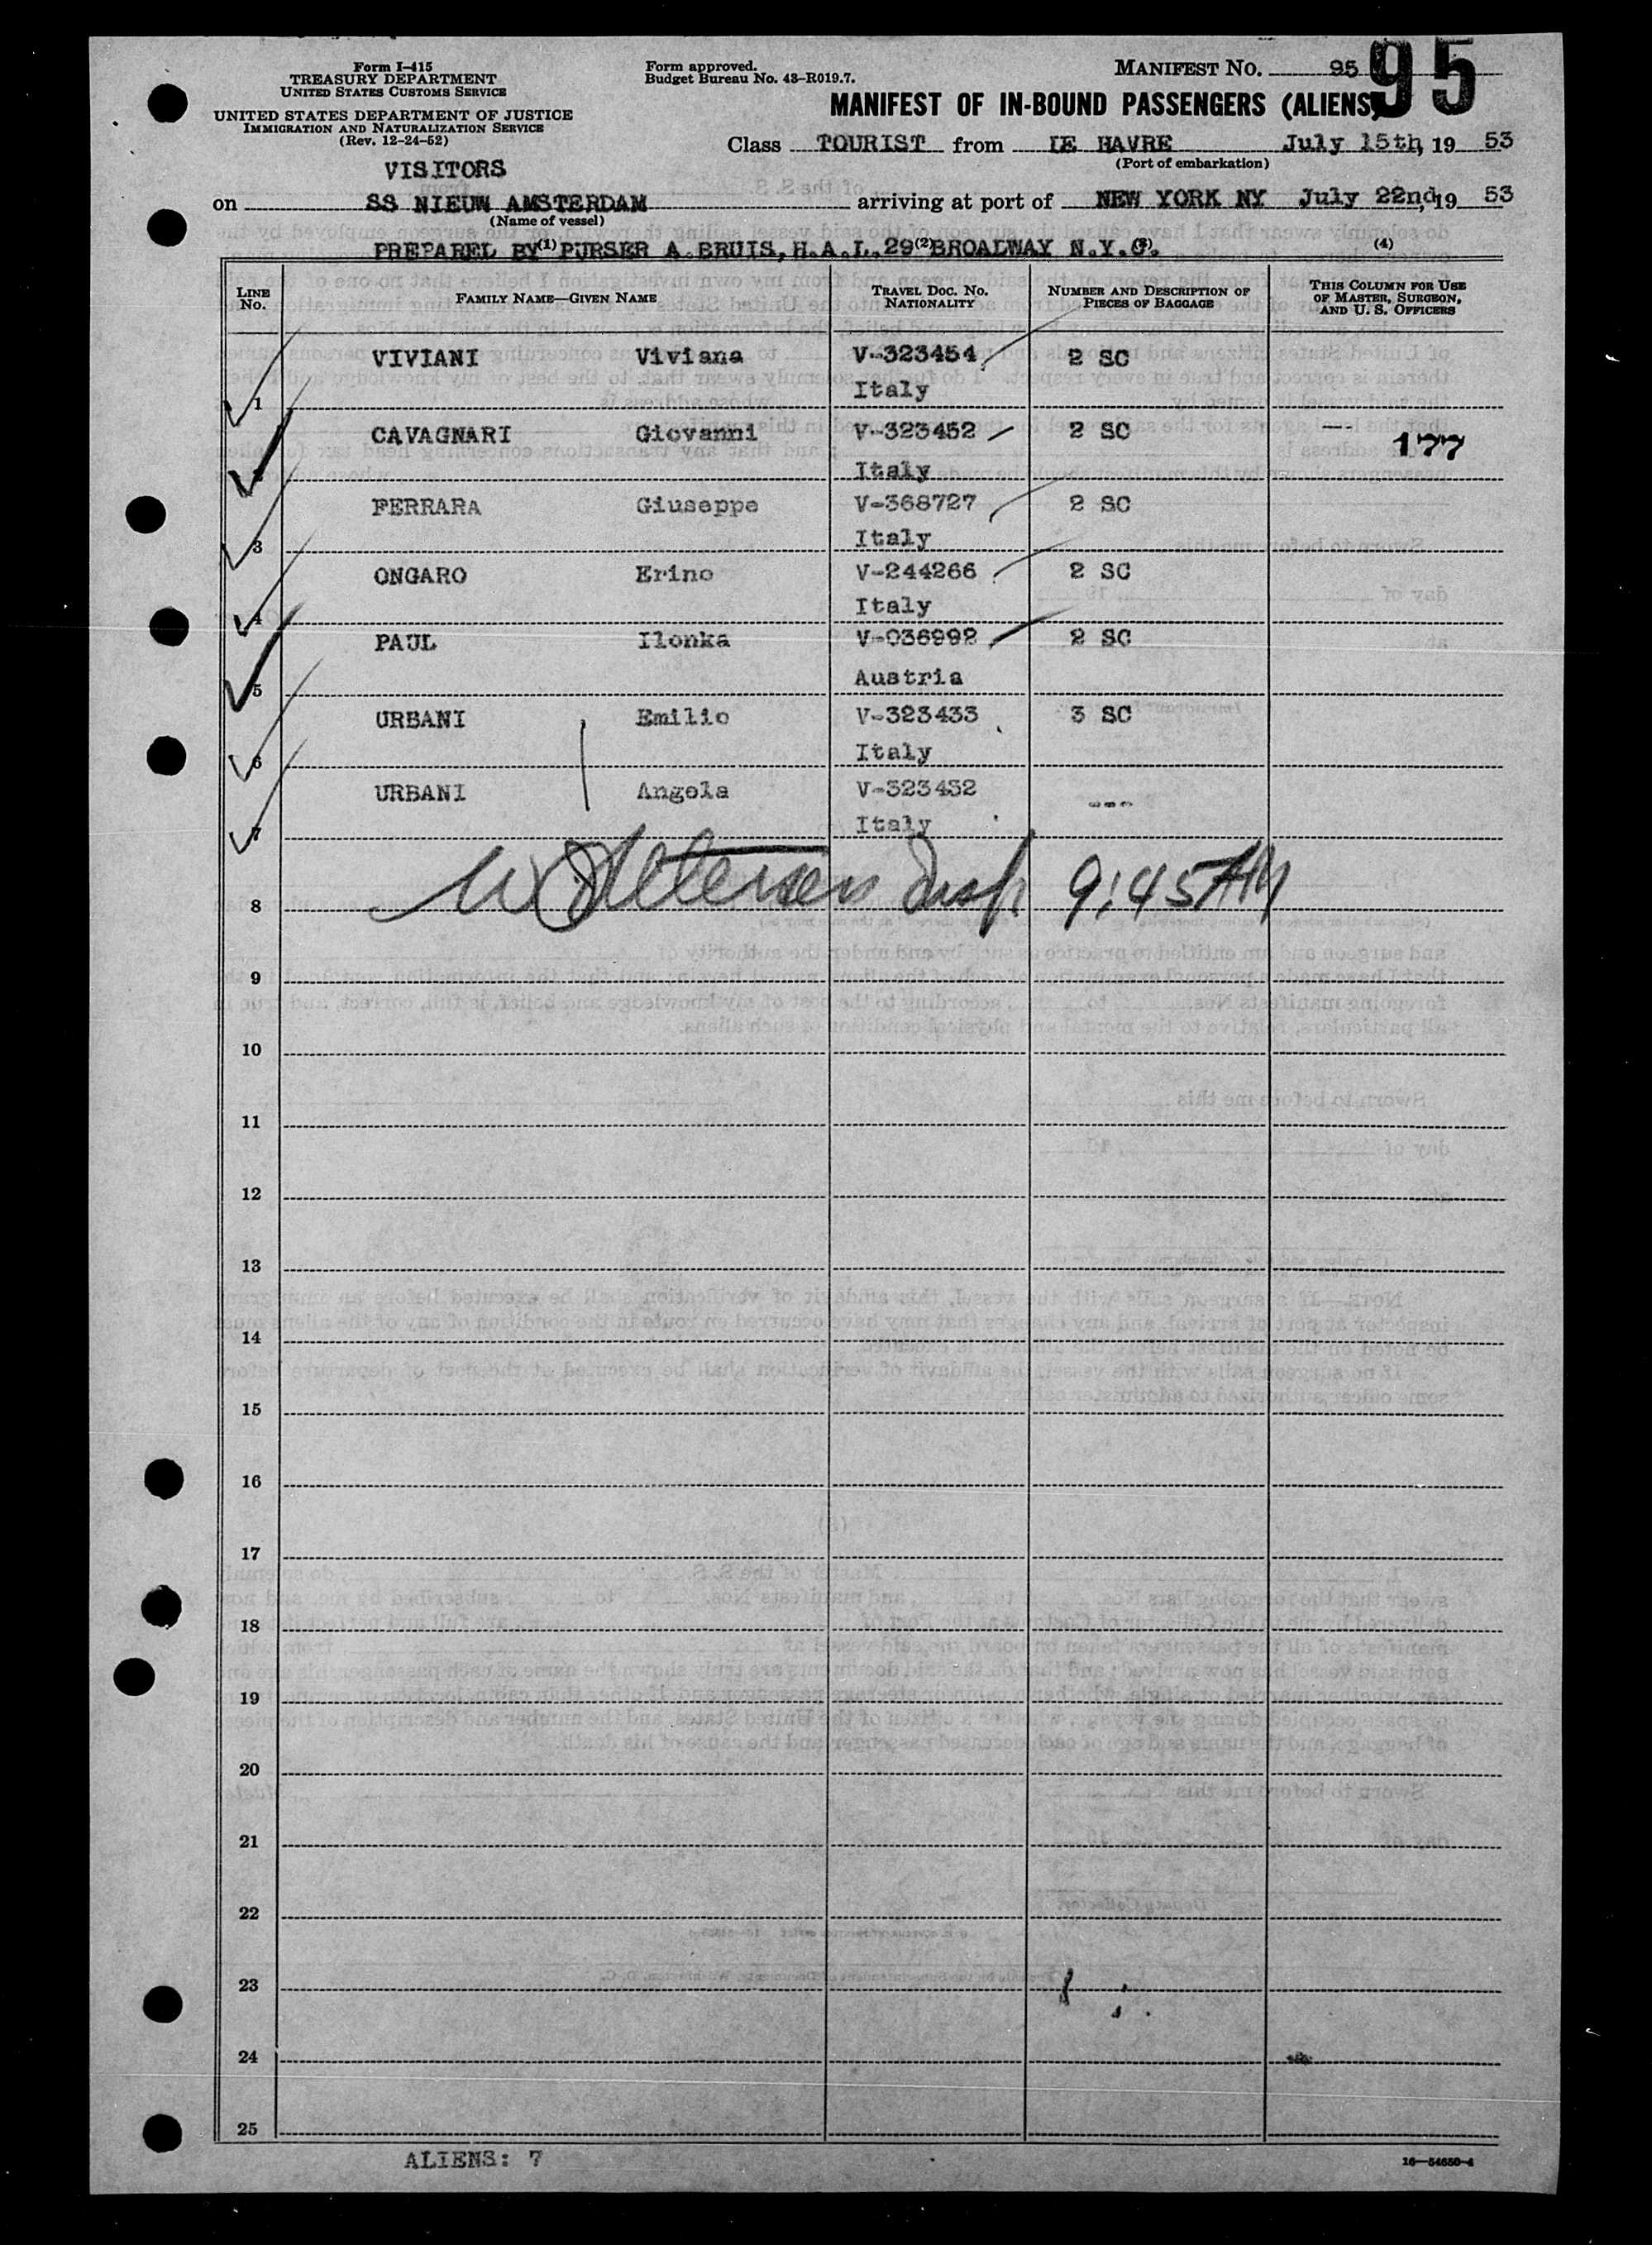 Form I-415
TREASURY DEPARTMENT
UNITED STATES CUSTOMS SERVICE
UNITED STATES DEPARTMENT OF JUSTICE
IMMIGRATION AND NATURALIZATION SERVICE
(Rev. 12-24-52)
Form approved.
Budget Bureau No. 43-R019.7.
MANIFEST NO. 95
95
MANIFEST OF IN-BOUND PASSENGERS (ALIENS)
Class TOURIST from LE HAVRE July 15th, 19 53
(Port of embarkation)
VISITORS
on SS NIEUW AMSTERDAM arriving at port of NEW YORK NY July 22nd, 19 53
(Name of vessel)
PREPARED BY (1) PURSER A.BRUIS, H.A.L. 29 (2) BROADWAY N.Y.C. (3) (4)
LINE NO. FAMILY NAME—GIVEN NAME TRAVEL DOC. NO. NATIONALITY NUMBER AND DESCRIPTION OF PIECES OF BAGGAGE THIS COLUMN FOR USE OF MASTER, SURGEON, AND U. S. OFFICERS
VIVIANI Viviana V-323454 2 SC
1 Italy
CAVAGNARI Giovanni V-323452 2 SC 177
2 Italy
FERRARA Giuseppe V-368727 2 SC
3 Italy
ONGARO Erino V-244266 2 SC
4 Italy
PAUL Ilonka V-036992 2 SC
5 Austria
URBANI Emilio V-323433 3 SC
6 Italy
URBANI Angela V-323432 ---
7 Italy
8 Insp 9:45 AM
9
10
11
12
13
14
15
16
17
18
19
20
21
22
23
24
25
ALIENS: 7
16—54650-4